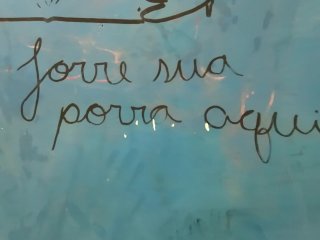 Jorre sua
porra aqui